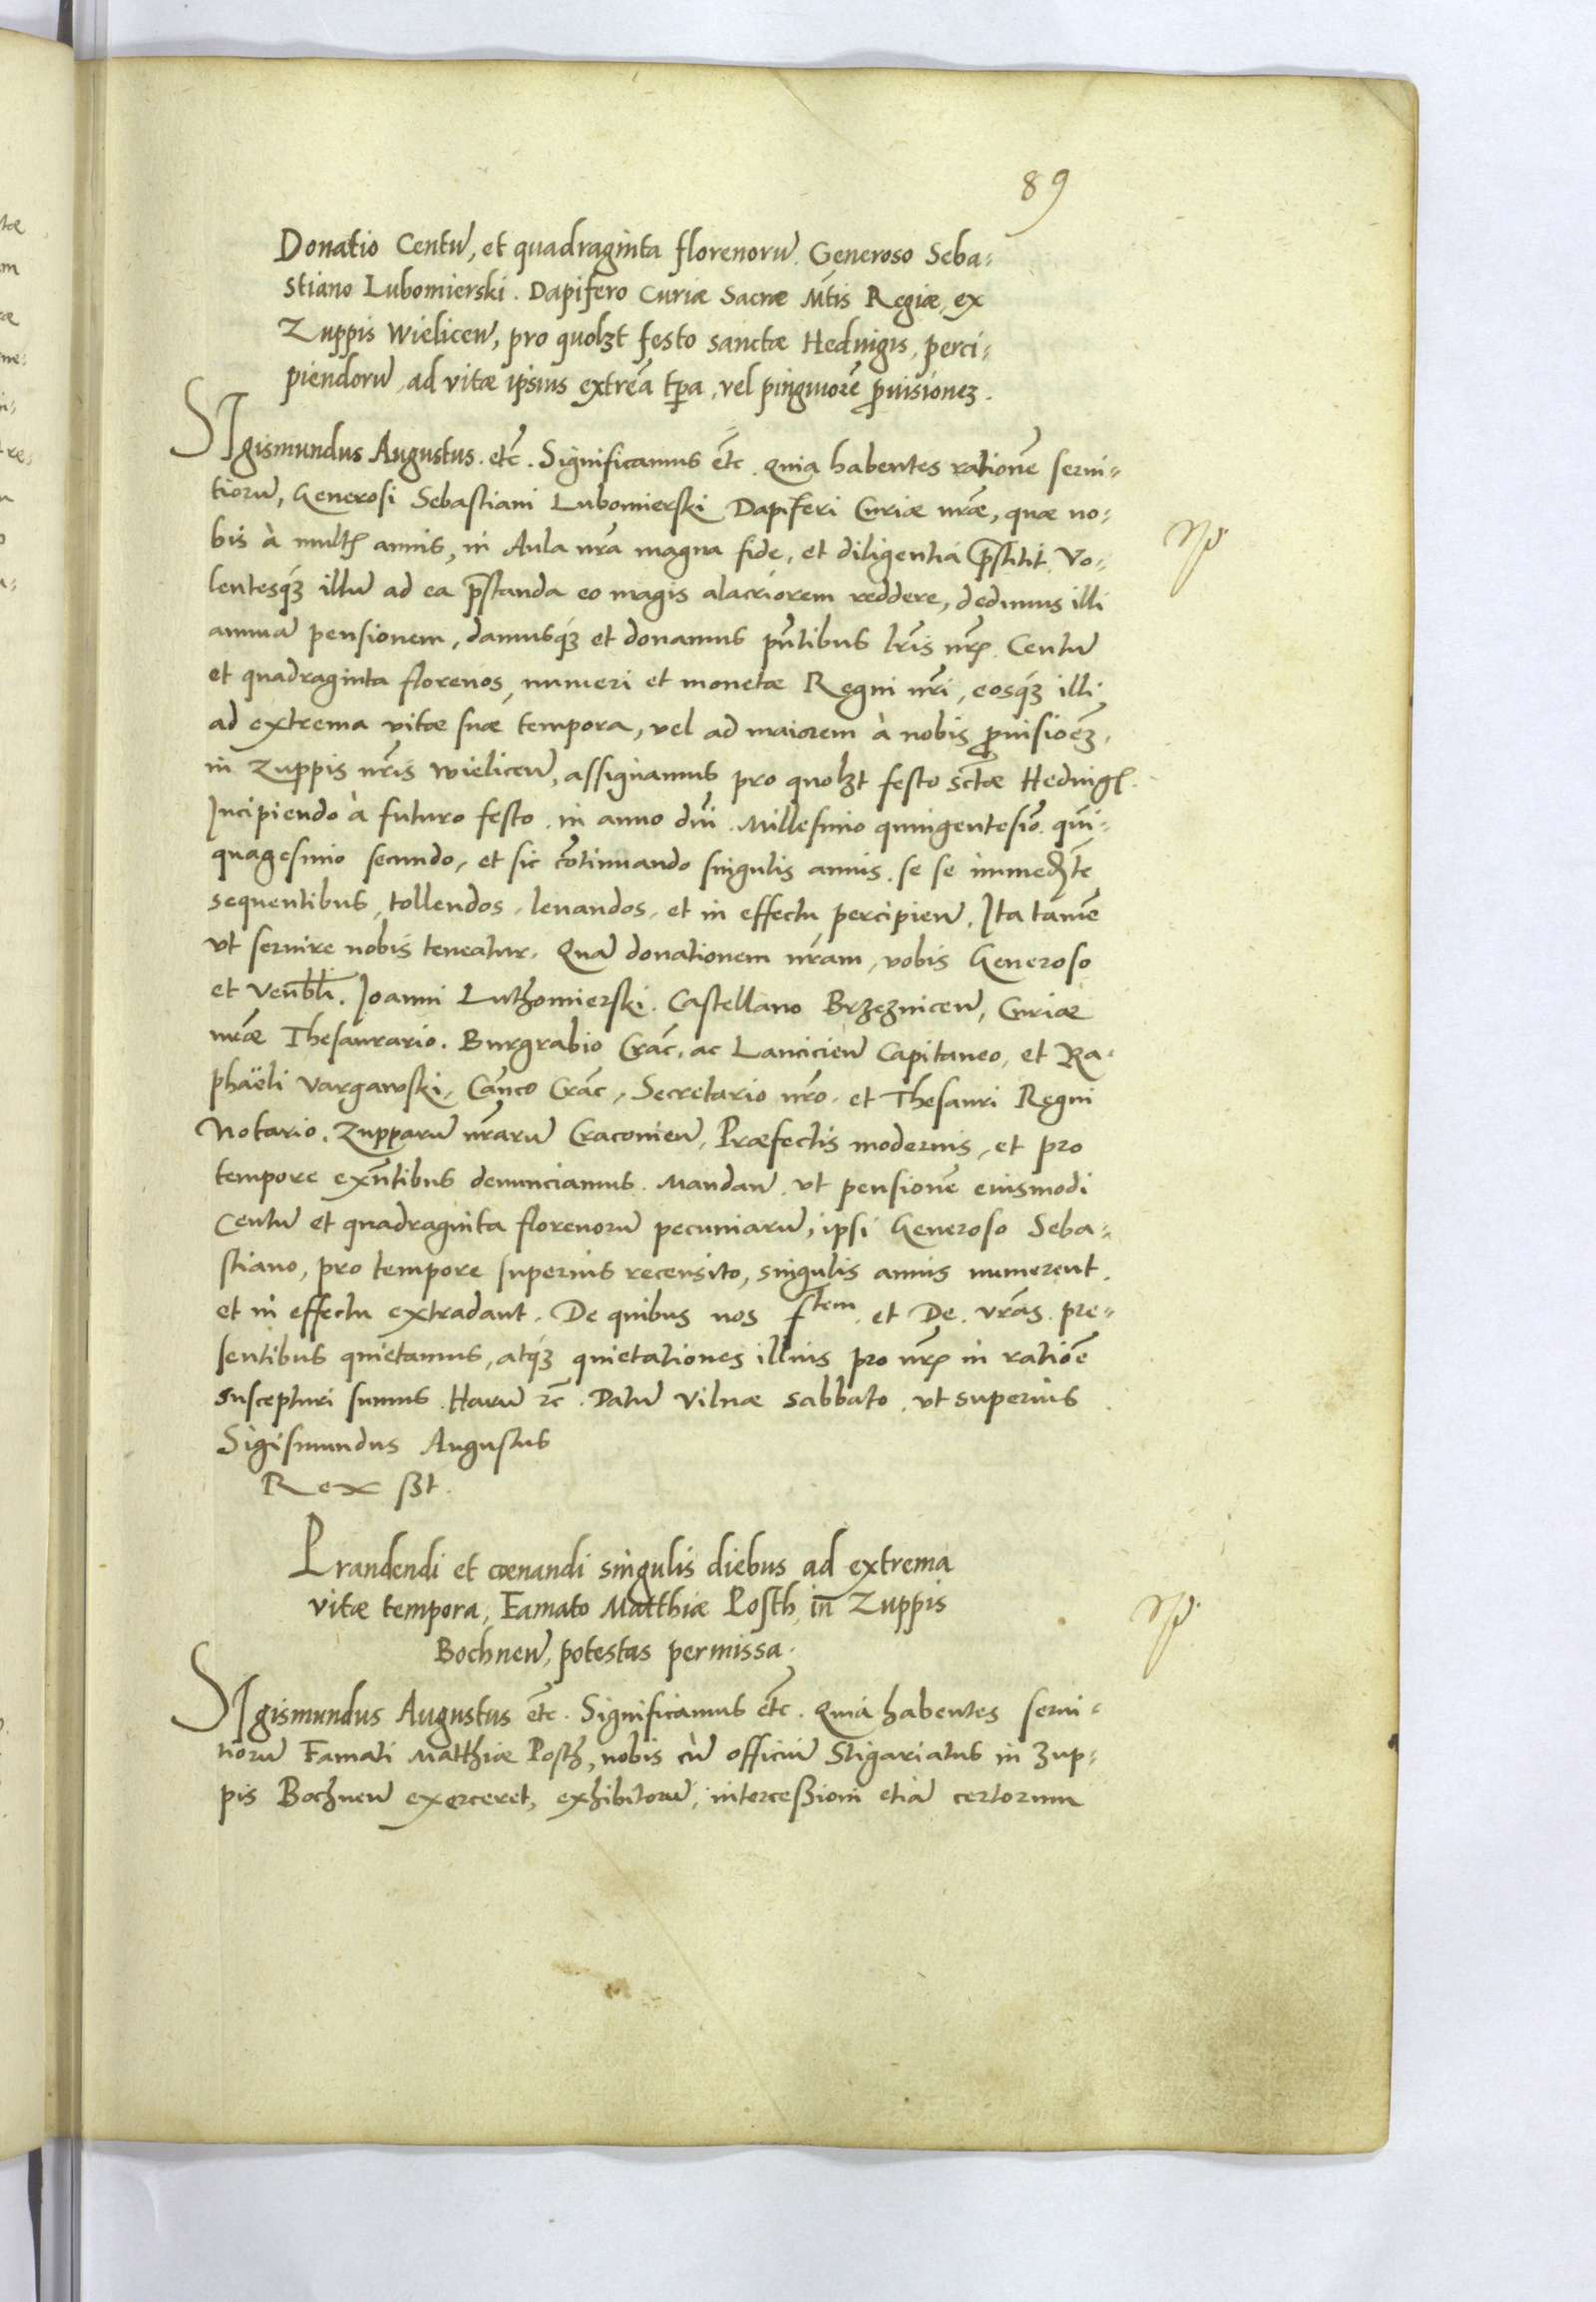 89
Donatio Centũ, et quadraginta florenorũ. Generoso Seba-
stiano Lubomierski. Dapifero Curiæ Sacræ Mtis Regiæ, ex
Zuppis Wielicen̄, pro quolꝫt festo sanctæ Hedvigis, perci-
piendorũ, ad vitæ ipsius extrẽa tp̃a, vel pinguiorẽ ꝓuisionez.
SIgismundus Augustus. etc̃. Significamus etc̃. Quia habentes rationẽ serui-
tiorũ, Generosi Sebastiani Lubomierski Dapiferi Curiæ nr̃æ, quæ no-
bis à multꝭ annis, in Aula nr̃a magna fide, et diligentia p̃stitit. Vo-
lentesqꝫ illũ ad ea p̃standa eo magis alacriorem reddere, dedimus illi
annuã pensionem, damusqꝫ et donamus pñtibus lr̃is nr̃ꝭ. Centũ
et quadraginta florenos, numeri et monetæ Regni nr̃i, eosqꝫ illi
ad extrema vitæ suæ tempora, vel ad maiorem à nobis ꝓuisioẽꝫ.
in Zuppis nr̃is Wielicen̄, assignamus pro quolꝫt festo sctæ Hedvigꝭ.
Incipiendo à futuro festo. in anno dñi. Millesimo quingentesiõ. qũi-
quagesimo secundo, et sic cõtinuando singulis annis. se se immedꝫte
sequentibus, tollendos. leuandos. et in effectu percipien̄. Ita tamẽ
vt seruire nobis teneatur. Quã donationem nr̃am, vobis Generoso
et Venbli. Joanni Luthomierski. Castellano Brzeznicen̄, Curiæ
nr̃æ Thesaurario. Burgrabio Crac̃. ac Lancicien̄ Capitaneo, et Ra-
phaëli Vargawski, Cañco Crac̃, Secretario nr̃o. et Thesauri Regni
Notario. Zupparũ nr̃arũ Cracouien̄, Præfectis modernis, et pro
tempore exñtibus denunciamus. Mandan̄. vt pensionẽ eiusmodi
Centũ et quadraginta florenorũ pecuniarũ, ipsi Generoso Seba-
stiano, pro tempore superius recensito, singulis annis numerent.
et in effectu extradant. De quibus nos ftem. et De. vr̃as. pre-
sentibus quietamus, atqꝫ quietationes illius pro nr̃ꝭ in ratiõe
suscepturi sumus. Harũ ꝛc̃. Datũ Vilnæ Sabbato. vt superius
Sigismundus Augustus
Rex ßt.
Prandendi et cœnandi singulis diebus ad extrema
vitæ tempora, Famato Matthiæ Posth, in Zuppis
Bochnen̄, potestas permissa.
SIgismundus Augustus etc̃. Significamus etc̃. Quia habentes serui-
tiorũ Famati Matthiæ Posth, nobis cũ officiũ Stigariatus in Zup-
pis Bochnen̄ exerceret, exhibitorũ, intercessioni etiã certorum